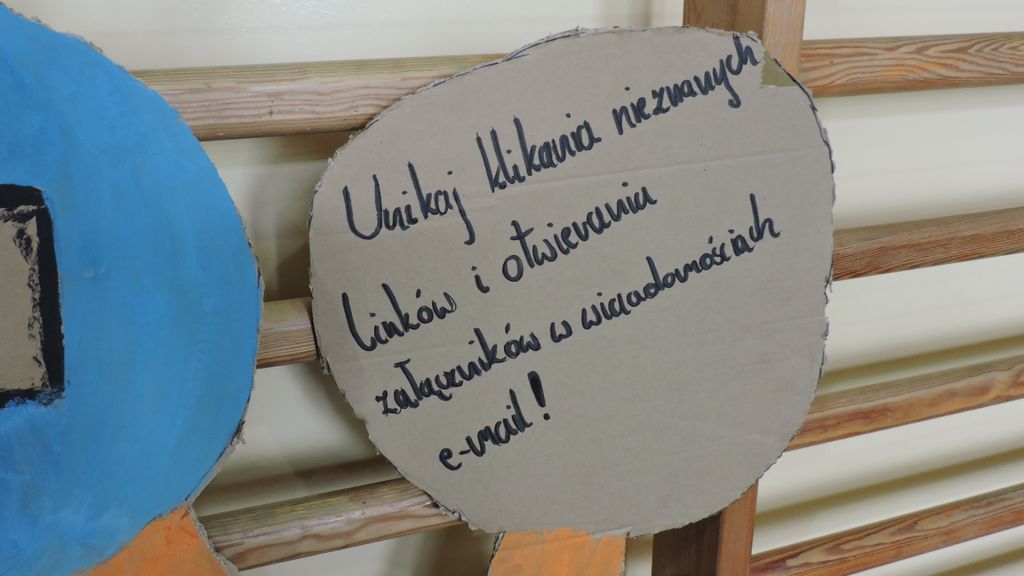 Unikaj klikania nieznanych
linków i otwierania
załączników w wiadomościach
e-mail!